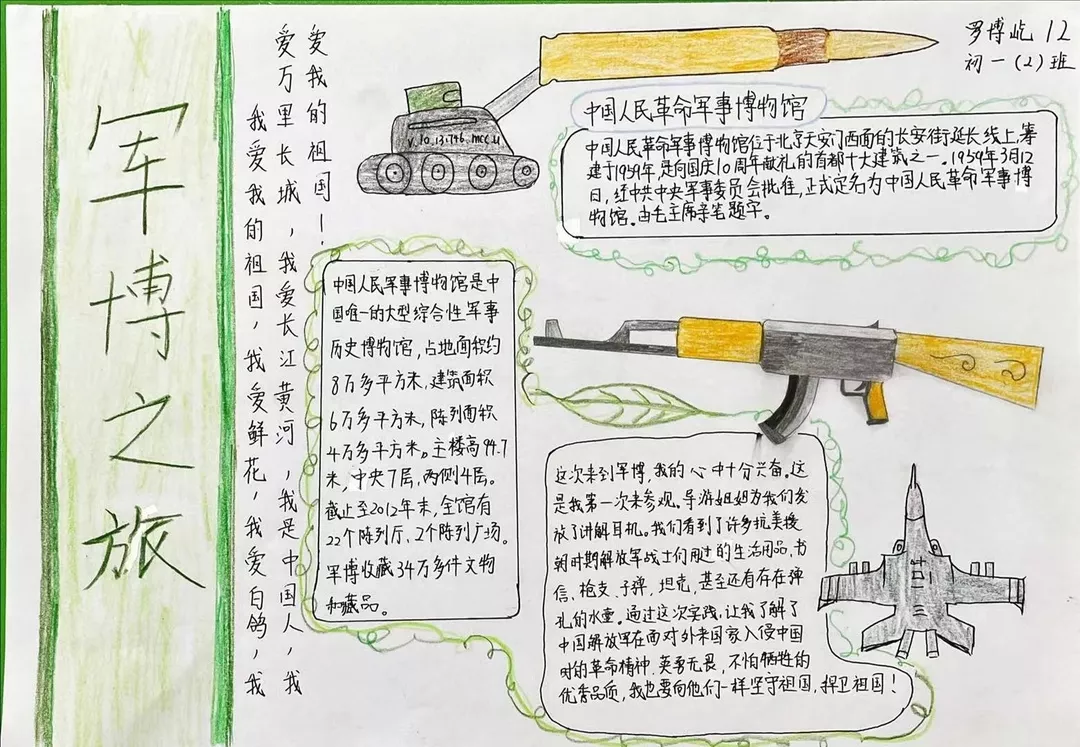 军博之旅
我爱我的祖国，我爱鲜花，我爱白鸽，我
爱万里长城，我爱长江黄河，我是中国人，我
爱我的祖国！
罗博屹 12
初一(2)班
中国人民革命军事博物馆
中国人民革命军事博物馆位于北京天安门西面的长安街延长线上，筹
建于1959年，是向国庆10周年献礼的首都十大建筑之一。1959年3月12
日，经中共中央军事委员会批准，正式定名为中国人民革命军事博
物馆。由毛主席亲笔题字。
中国人民军事博物馆是中
国唯一的大型综合性军事
历史博物馆，占地面积约
8万多平方米，建筑面积
6万多平方米，陈列面积
4万多平方米。主楼高94.7
米，中央7层，两侧4层。
截止至2012年末，全馆有
22个陈列厅、2个陈列广场。
军博收藏34万多件文物
和藏品。
这次来到军博，我的心中十分兴奋。这
是我第一次来参观。导游姐姐为我们发
放了讲解耳机。我们看到了许多抗美援
朝时期解放军战士们用过的生活用品，书
信、枪支、子弹，坦克，甚至还有存在弹
孔的水壶。通过这次实践，让我了解了
中国解放军在面对外来国家入侵中国
时的革命精神，英勇无畏，不怕牺牲的
优秀品质，我也要向他们一样坚守祖国，捍卫祖国！